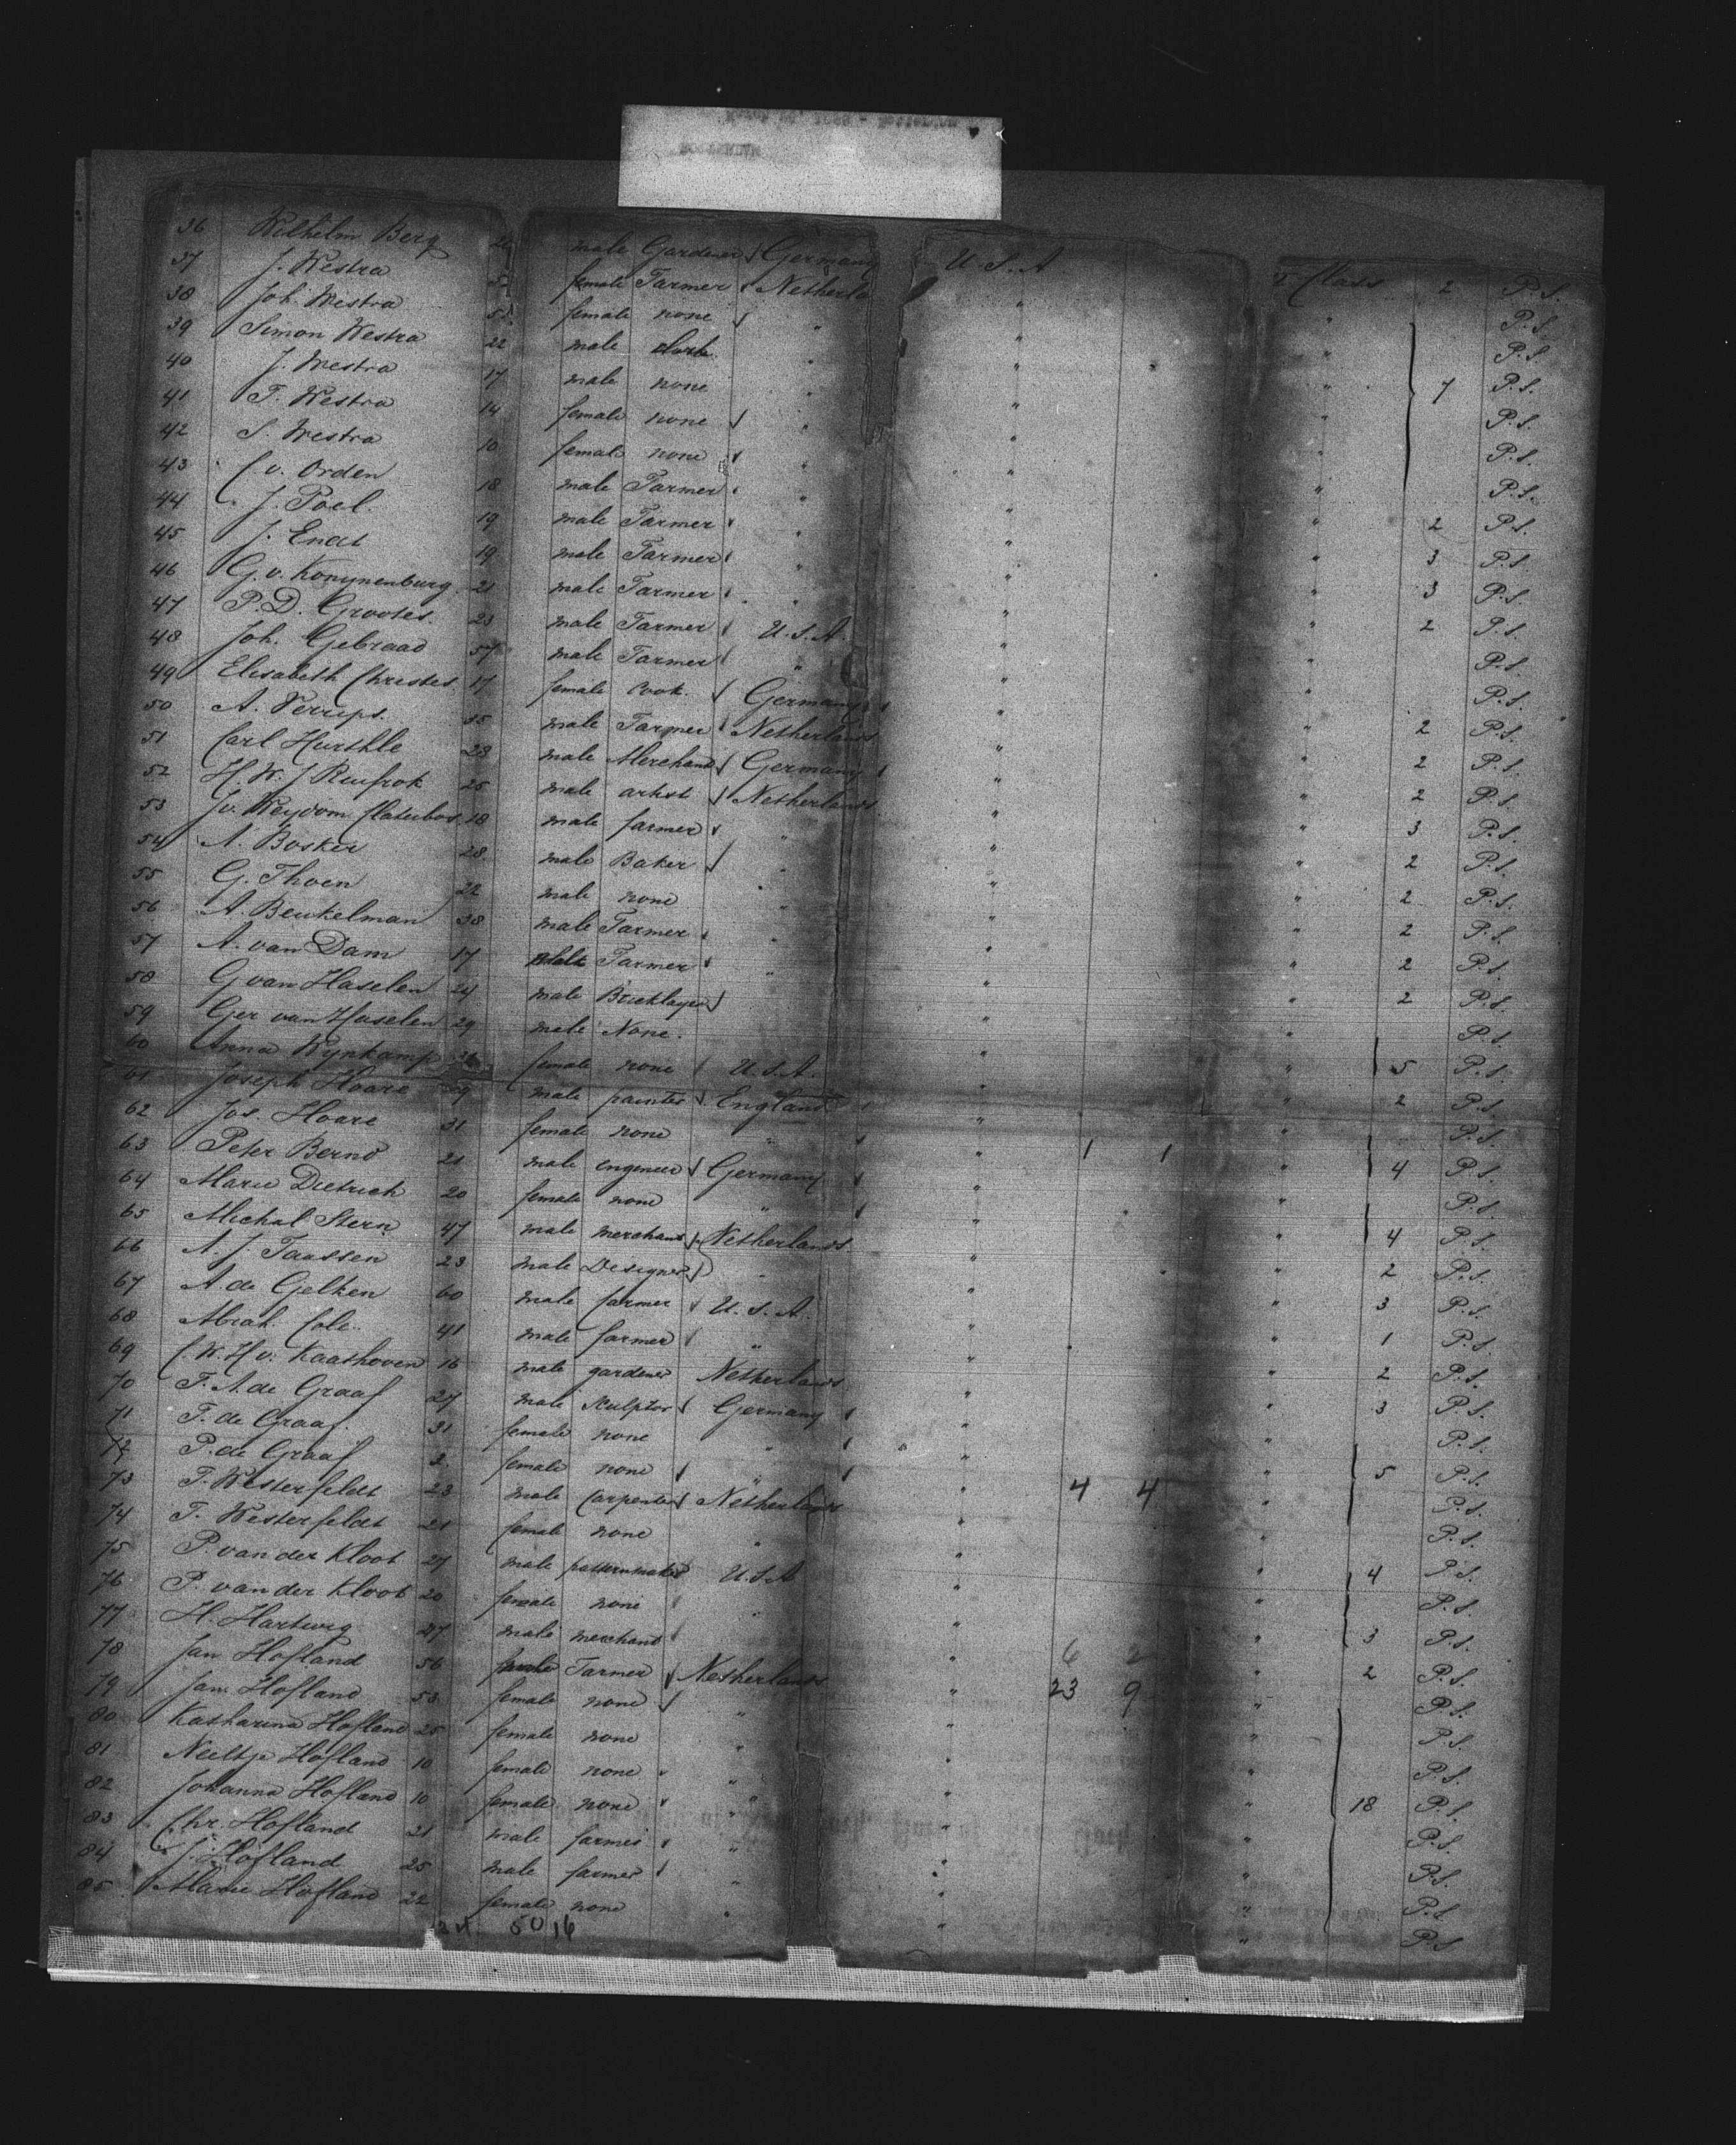 36 Wilhelm Berg male Gardener Germany U.S.A. 2 Class 2 P.S.
37 J. Westra female Farmer Netherla " " P.S.
38 Joh. Westra female none " " " P.S.
39 Simon Westra 22 male clerk " " " 7 P.S.
40 J. Westra 17 male none " " " P.S.
41 T. Westra 14 female none " " " P.S.
42 S. Westra 10 female none " " " P.S.
43 C. v. Orden 18 male Farmer " " " 2 P.S.
44 J. Poel 19 male Farmer " " " 3 P.S.
45 J. Endt 19 male Farmer " " " 3 P.S.
46 G. v. Konynenburg 21 male Farmer " " " 2 P.S.
47 P. D. Grootes 23 male Farmer U.S.A. " " P.S.
48 Joh. Gebraad 57 male Farmer " " " P.S.
49 Elisabeth Christes 17 female Cook Germany " " 2 P.S.
50 A. Verrips 35 male Farmer Netherlands " " 2 P.S.
51 Carl Hurthle 28 male Merchand Germany " " 2 P.S.
52 H. W. J. Ruifrok 25 male artist Netherlands " " 3 P.S.
53 J v. Weydom Claterbos 18 male farmer " " " 2 P.S.
54 A. Bosker 28 male Baker " " " 2 P.S.
55 G. Thoen 22 male none " " " 2 P.S.
56 A. Beukelman 38 male Farmer " " " 2 P.S.
57 A. van Dam 17 Male Farmer " " " 2 P.S.
58 G van Haselen 24 male Bricklayer " " P.S.
59 Ger van Haselen 29 male None " " 5 P.S.
60 Anna Wynkamp female none U.S.A. " " 2 P.S.
61 Joseph Hoare 29 male painter England " " P.S.
62 Jos. Hoare 31 female none " " 1 1 " 4 P.S.
63 Peter Bernd 21 male engeneer Germany " " P.S.
64 Marie Dietrich 20 female none " " " 4 P.S.
65 Michal Stern 47 male merchant Netherlands " " 2 P.S.
66 A. J. Taassen 23 male Designer " " " 3 P.S.
67 A. de Gelken 60 male farmer U.S.A. " " 1 P.S.
68 Abrah. Cole 41 male farmer " " " 2 P.S.
69 C. W. H v. Kaathoven 16 male gardener Netherlands " " 3 P.S.
70 T. A. de Graaf 27 male sculptor Germany " " P.S.
71 T. de Graaf 31 female none " " " 5 P.S.
72 P. de Graaf 2 female none " " 4 4 " P.S.
73 T. Westerfeldt 23 male Carpenter Netherlands " " P.S.
74 T. Westerfeldt 21 female none " " " 4 P.S.
75 P. van der Kloot 27 male patternmaker U.S.A " " P.S.
76 P. van der Kloot 20 female none " " " 3 P.S.
77 H. Hartwig 27 male merchand " 6 2 " 2 P.S.
78 Jan Hofland 56 Farmer Netherlands " 23 9 " P.S.
79 Jan Hofland 53 female none " " " P.S.
80 Katharina Hofland 25 female none " " " P.S.
81 Neeltje Hofland 10 female none " " " 18 P.S.
82 Johanna Hofland 10 female none " " " P.S.
83 Chr. Hofland 21 male farmer " " " P.S.
84 J. Hofland 25 male farmer " " " P.S.
85 Marie Hofland 22 female none " " " P.S
50 16